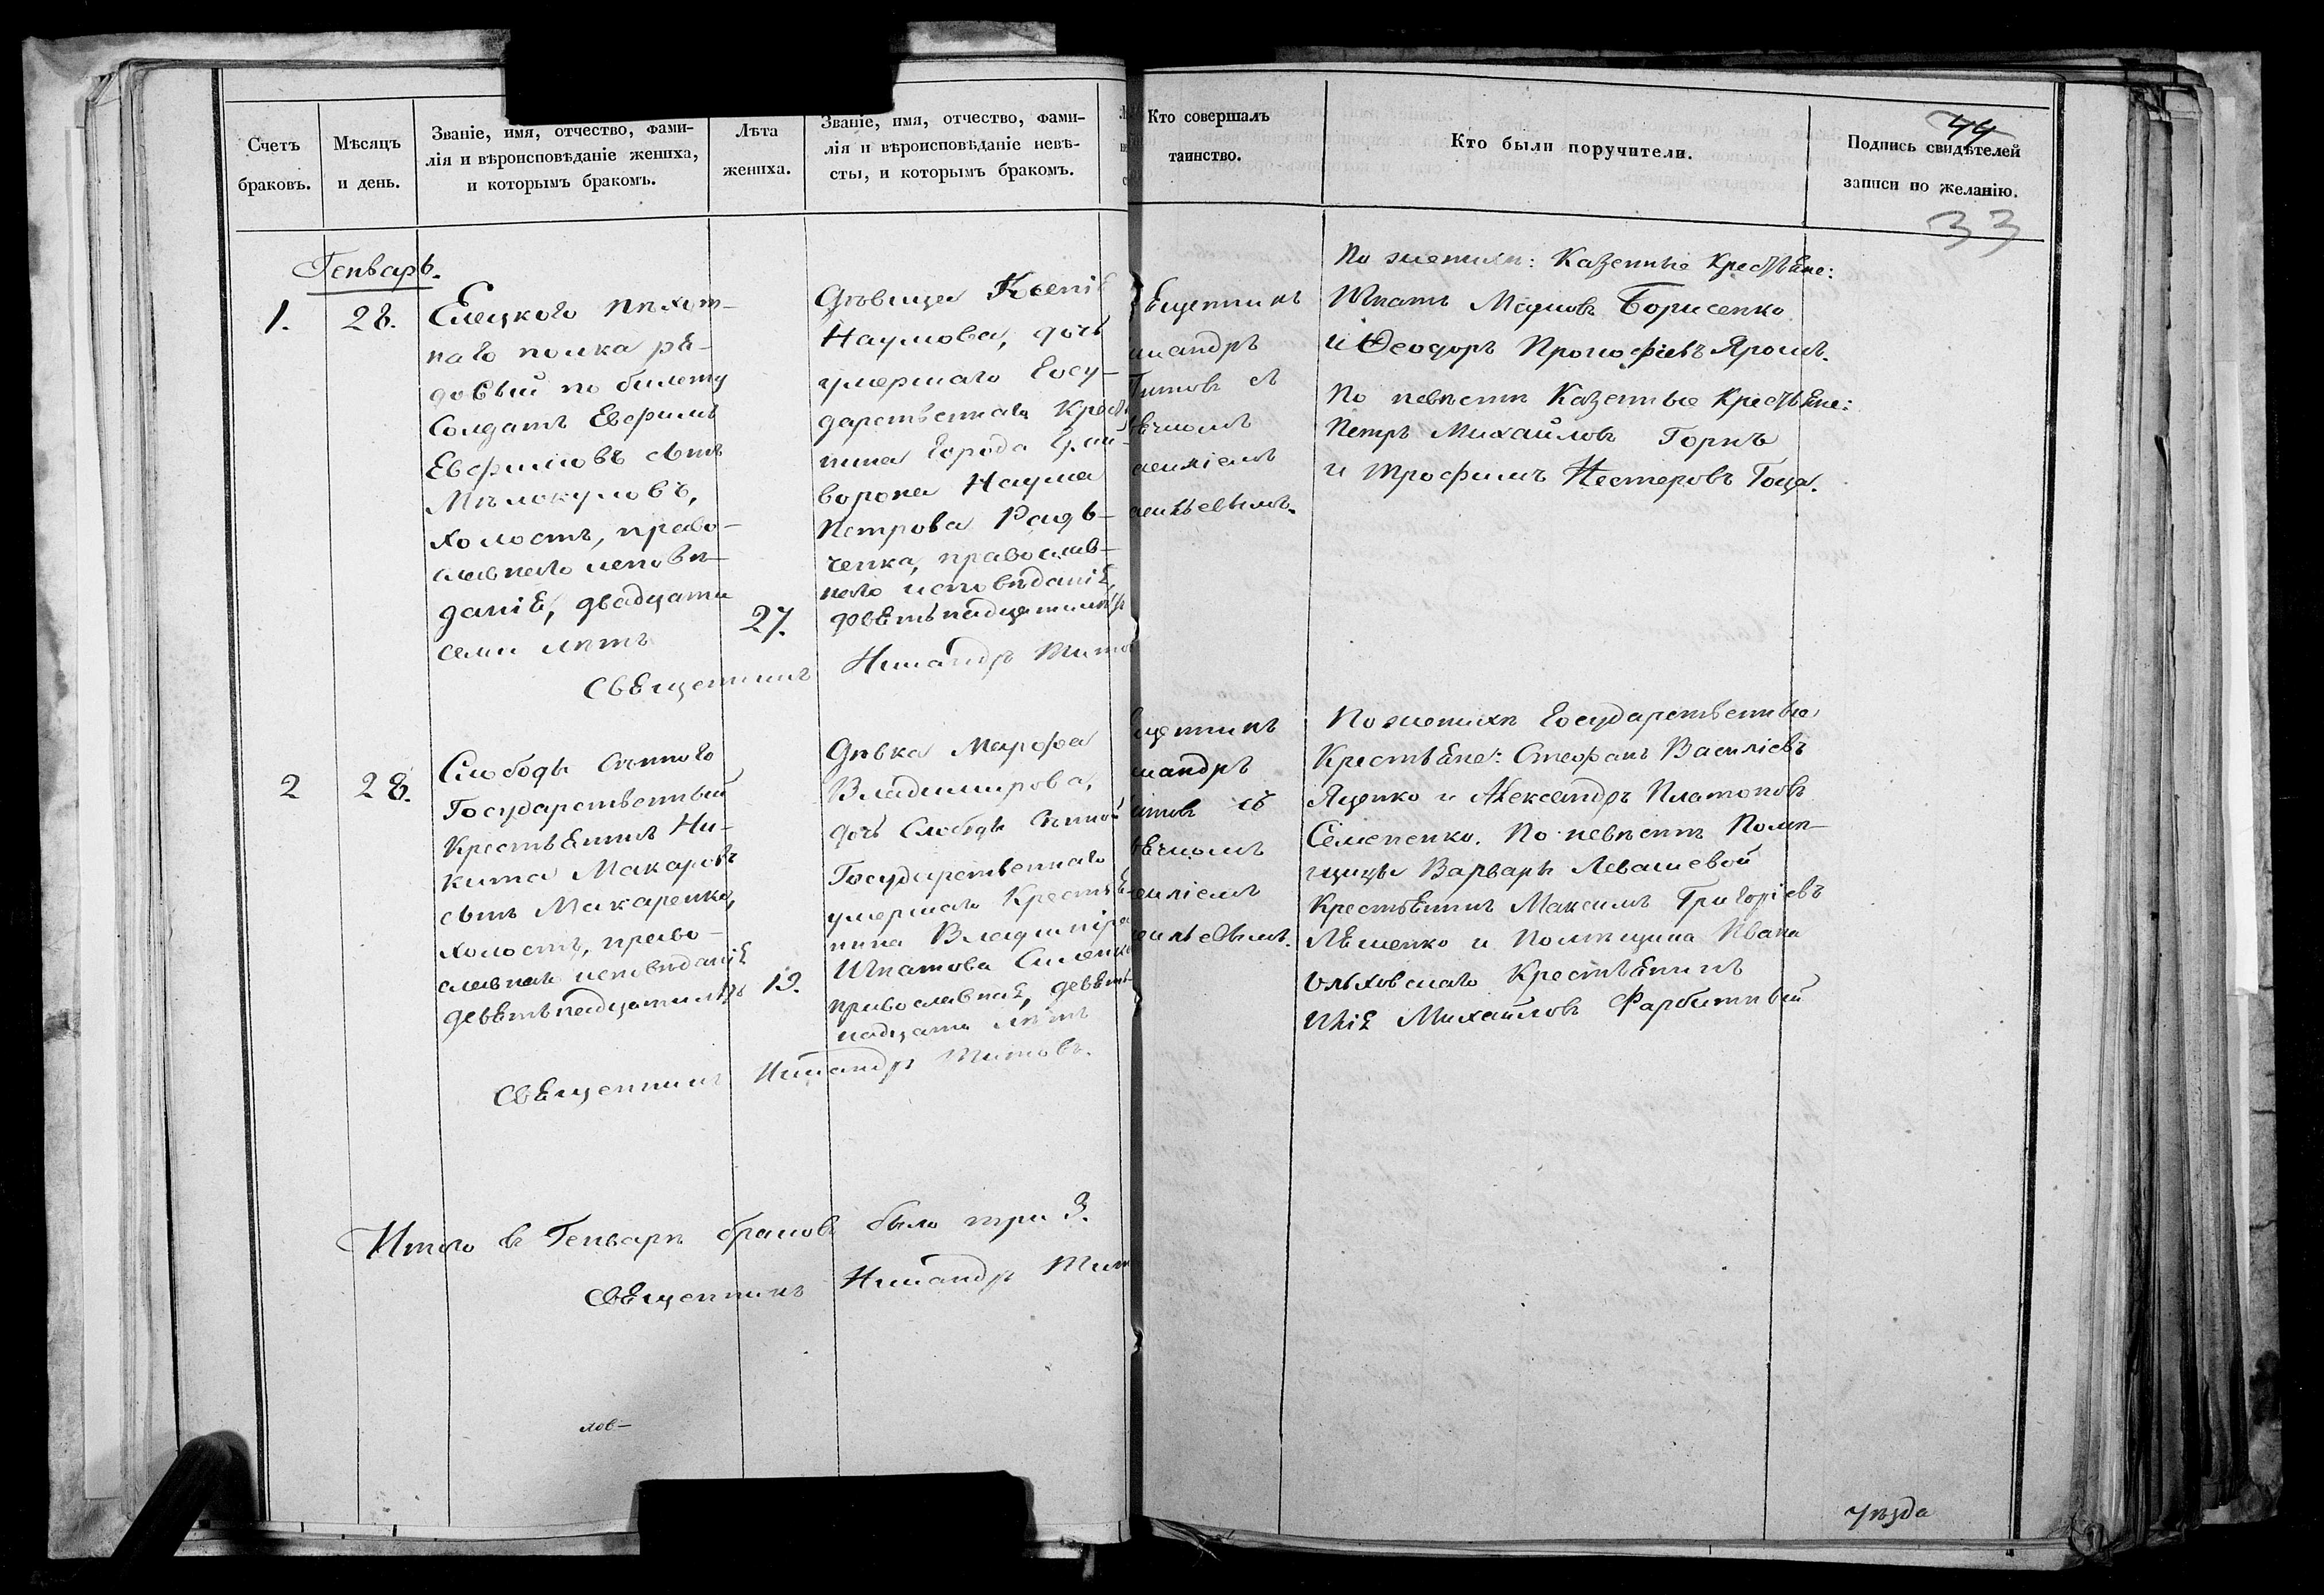 44
33
Счетъ
браковъ.
Мѣсяцъ
и день.
Званіе, имя, отчество, фами-
лія и вѣроисповѣданіе жениха,
и которымъ бракомъ.
Лѣта
жениха.
Званіе, имя, отчество, фами-
лія и вѣроисповѣданіе невѣ-
сты, и которымъ бракомъ.
Кто совершалъ
таинство.
Кто были поручители.
Подпись свидѣтелей
записи по желанію.
Генварь.
1.
28.
Елецкого пѣхот-
наго полка ря-
довый по билету
Солдатъ Евфимъ
Евфимовъ сынъ
холостъ, право-
славнаго исповѣ-
данія, двадцати
семи лѣтъ
27.
Дѣвица Ксенія
Наумова, дочь
умершаго Госу-
дарственнаго Крест
нина города Зми-
ворона Наума
Петрова Радь-
ченка, православ-
наго исповѣданія,
девятьнадцатилѣтъ
Священникъ Никандръ Титов
ященникъ
икандръ
Титовъ съ
По женихѣ: Казенные Крестьяне:
Игнатъ Мафиовъ Борисенко
и Ѳеодоръ Прокофіевъ Ярошъ.
По невѣстѣ Казенные Крестьяне:
Петръ Михайловъ Горкъ
и Трофимъ Нестеровъ Гоца.
2
28.
Слободы
Государственный
Крестьянинъ Ни-
кита Макаровъ
сынъ Макаренко,
холостъ, право-
славнаго исповѣданія
девятьнадцатилѣтъ
19.
Дѣвка Марфа
Владимирова,
дочь Слободы
Государственнаго
умершаго Крестья-
нина Владиміра
Игнатова
православная, девять-
надцати лѣтъ
Священникъ Никандръ Титовъ.
щенникъ
икандръ
итовъ съ
По женихѣ Государственные
Крестьяне: Стефанъ Василіевъ
Яценко и Александръ Платоновъ
Семененко. По невѣстѣ Помѣ-
щицы Варвары Левашевой
Крестьянинъ Максимъ Григоріевъ
Ляшенко и Помѣщика Ивана
Ольховскаго Крестьянинъ
Илія Михайловъ Фарбитный
Итого въ Генварѣ браковъ было три 3.
Священникъ Никандръ Тит
лов-
Уѣзда